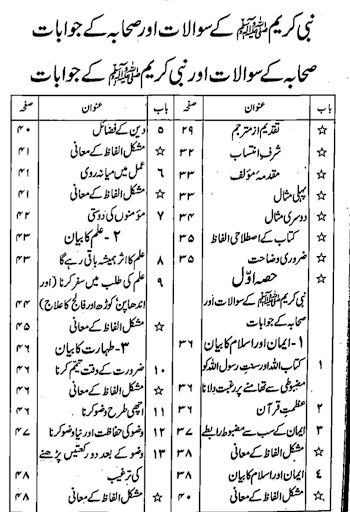 نبی کریم ﷺ کے سوالات اور صحابہ کے جوابات
صحابہ کے سوالات اور نبی کریم ﷺ کے جوابات
باب عنوان صفحہ
☆ تقدیم از مترجم ۲۹
☆ شرفِ انتساب ۳۲
☆ مقدمۂ مؤلف ۳۳
☆ پہلی مثال ۳۳
☆ دوسری مثال ۳۴
☆ کتاب کے اصطلاحی الفاظ ۳۵
☆ ضروری وضاحت ۳۵
☆ حصہ اوّل
نبی کریم ﷺ کے سوالات اور
صحابہ کے جوابات
۱- ایمان اور اسلام کا بیان ۳۶
۱ کتاب اللہ اور سنتِ رسول اللہ کو
مضبوطی سے تھامنے پر رغبت دلانا ۳۶
۲ عظمتِ قرآن ۳۶
۳ ایمان کے سب سے مضبوط رابطے ۳۷
☆ مشکل الفاظ کے معانی ۳۸
٤ ایمان اور اسلام کا بیان ۳۸
☆ مشکل الفاظ کے معانی ۴۰
باب عنوان صفحہ
۵ دین کے فضائل ۴۰
☆ مشکل الفاظ کے معانی ۴۱
۶ عمل میں میانہ روی ۴۱
☆ مشکل الفاظ کے معانی ۴۱
۷ مؤمنوں کی دوستی ۴۲
۲- علم کا بیان ۴۳
۸ علم کا اثر ہمیشہ باقی رہے گا ۴۳
۹ علم کی طلب میں سفر کرنا (اور
اندھا پن، کوڑھ اور فالج کا علاج) ۴۴
☆ مشکل الفاظ کے معانی ۴۵
۳- طہارت کا بیان ۴۶
۱۰ ضرورت کے وقت تیمّم کرنا ۴۶
☆ مشکل الفاظ کے معانی ۴۶
۱۱ اچھی طرح وضو کرنا ۴۶
۱۲ وضو کی حفاظت اور نیا وضو کرنا ۴۷
۱۳ وضو کے بعد دو رکعتیں پڑھنے
کی ترغیب ۴۸
☆ مشکل الفاظ کے معانی ۴۸